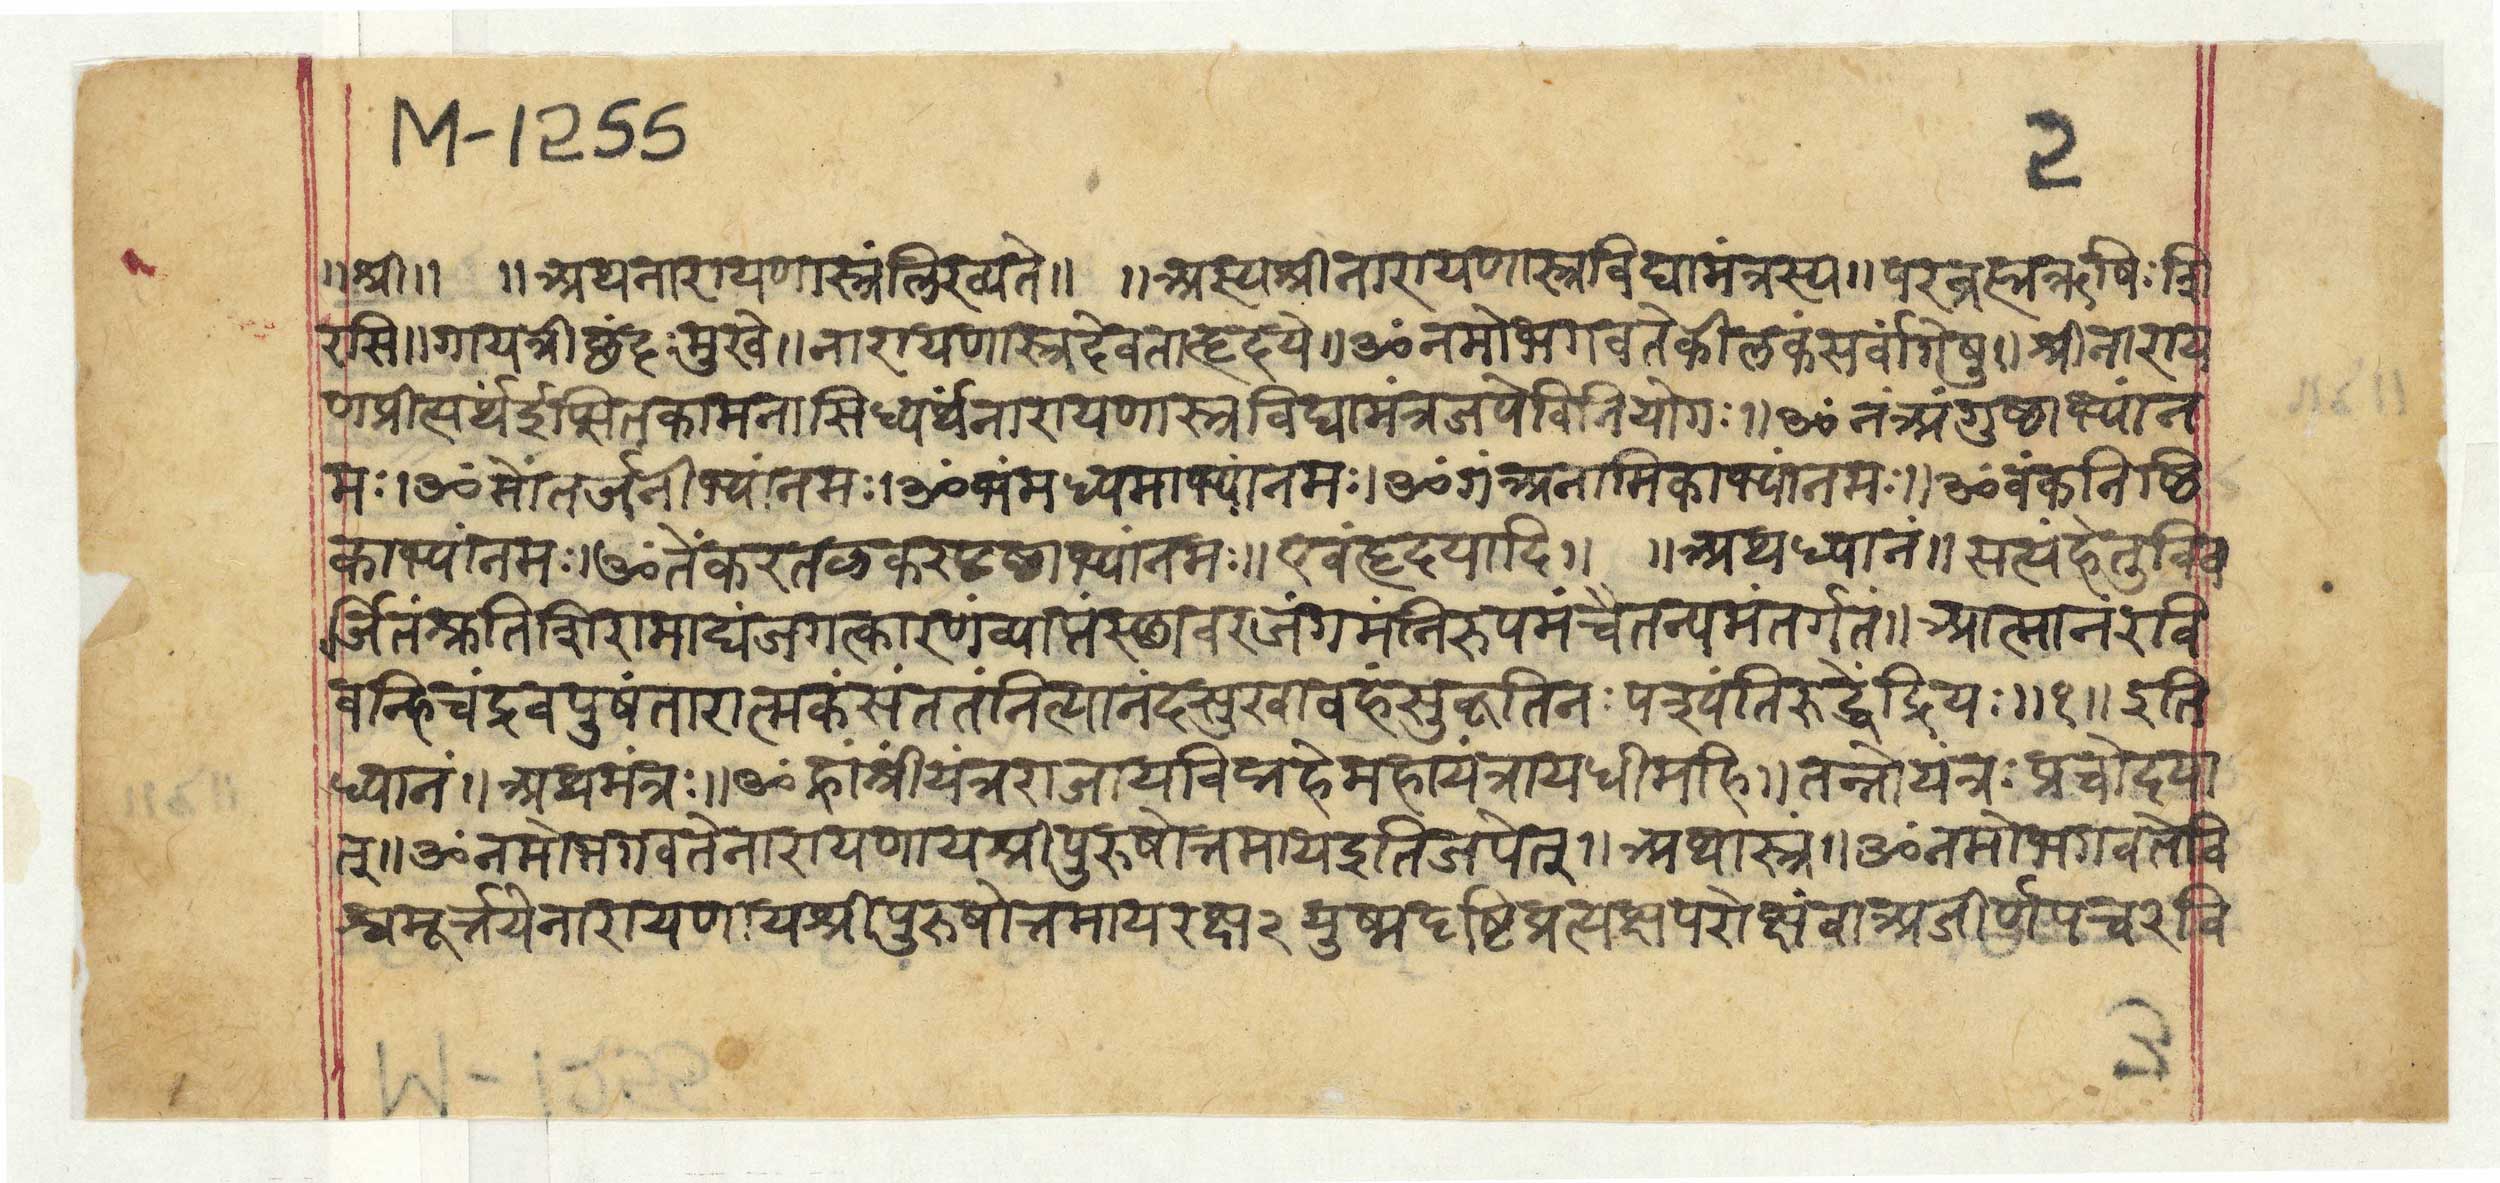 M-1255
2
॥श्री॥ ॥अथनारायणास्त्रंलिख्यते॥ ॥अस्यश्रीनारायणास्त्रविद्यामंत्रस्य॥परब्रह्मऋषिःशि
रसि॥गायत्रीछंदःमुखे॥नारायणास्त्रदेवताहृदये॥ॐनमोभगवतेकीलकंसर्वांगेषु॥श्रीनाराय
णप्रीत्यर्थंईप्सितकामनासिध्यर्थंनारायणास्त्रविद्यामंत्रजपेविनियोगः॥ॐनंअंगुष्ठाभ्यांन
मः।ॐमोंतर्जनीभ्यांनमः।ॐभंमध्यमाभ्यांनमः।ॐगंअनामिकाभ्यांनमः॥ॐवंकनिष्ठि
काभ्यांनमः।ॐतेंकरतळकरपृष्ठाभ्यांनमः॥एवंहृदयादि॥ ॥अथध्यानं॥सत्यंहेतुविव
र्जितंश्रुतिशिरामाद्यंजगत्कारणंव्याप्तंस्छावरजंगमंनिरुपमंचैतन्यमंतर्गतं॥आत्मानंरवि
वन्हिचंद्रवपुषंतारात्मकंसंततंनित्यानंदसुखावहंसुकृतिनःपश्यंतिरुद्धेंद्रियः॥१॥इति
ध्यानं॥अथमंत्रः॥ॐह्रांश्रींयंत्रराजायविद्महेमहायंत्रायधीमहि॥तन्नोयंत्रःप्रचोदया
त्॥ॐनमोभगवतेनारायणायश्रीपुरुषोत्तमायइतिजपेत्॥अथास्त्रं॥ॐनमोभगवतेवि
श्वमूर्त्तयेनारायणायश्रीपुरुषोत्तमायरक्ष२युष्मदृष्टिप्रत्यक्षपरोक्षंवाअजीर्णपच२वि